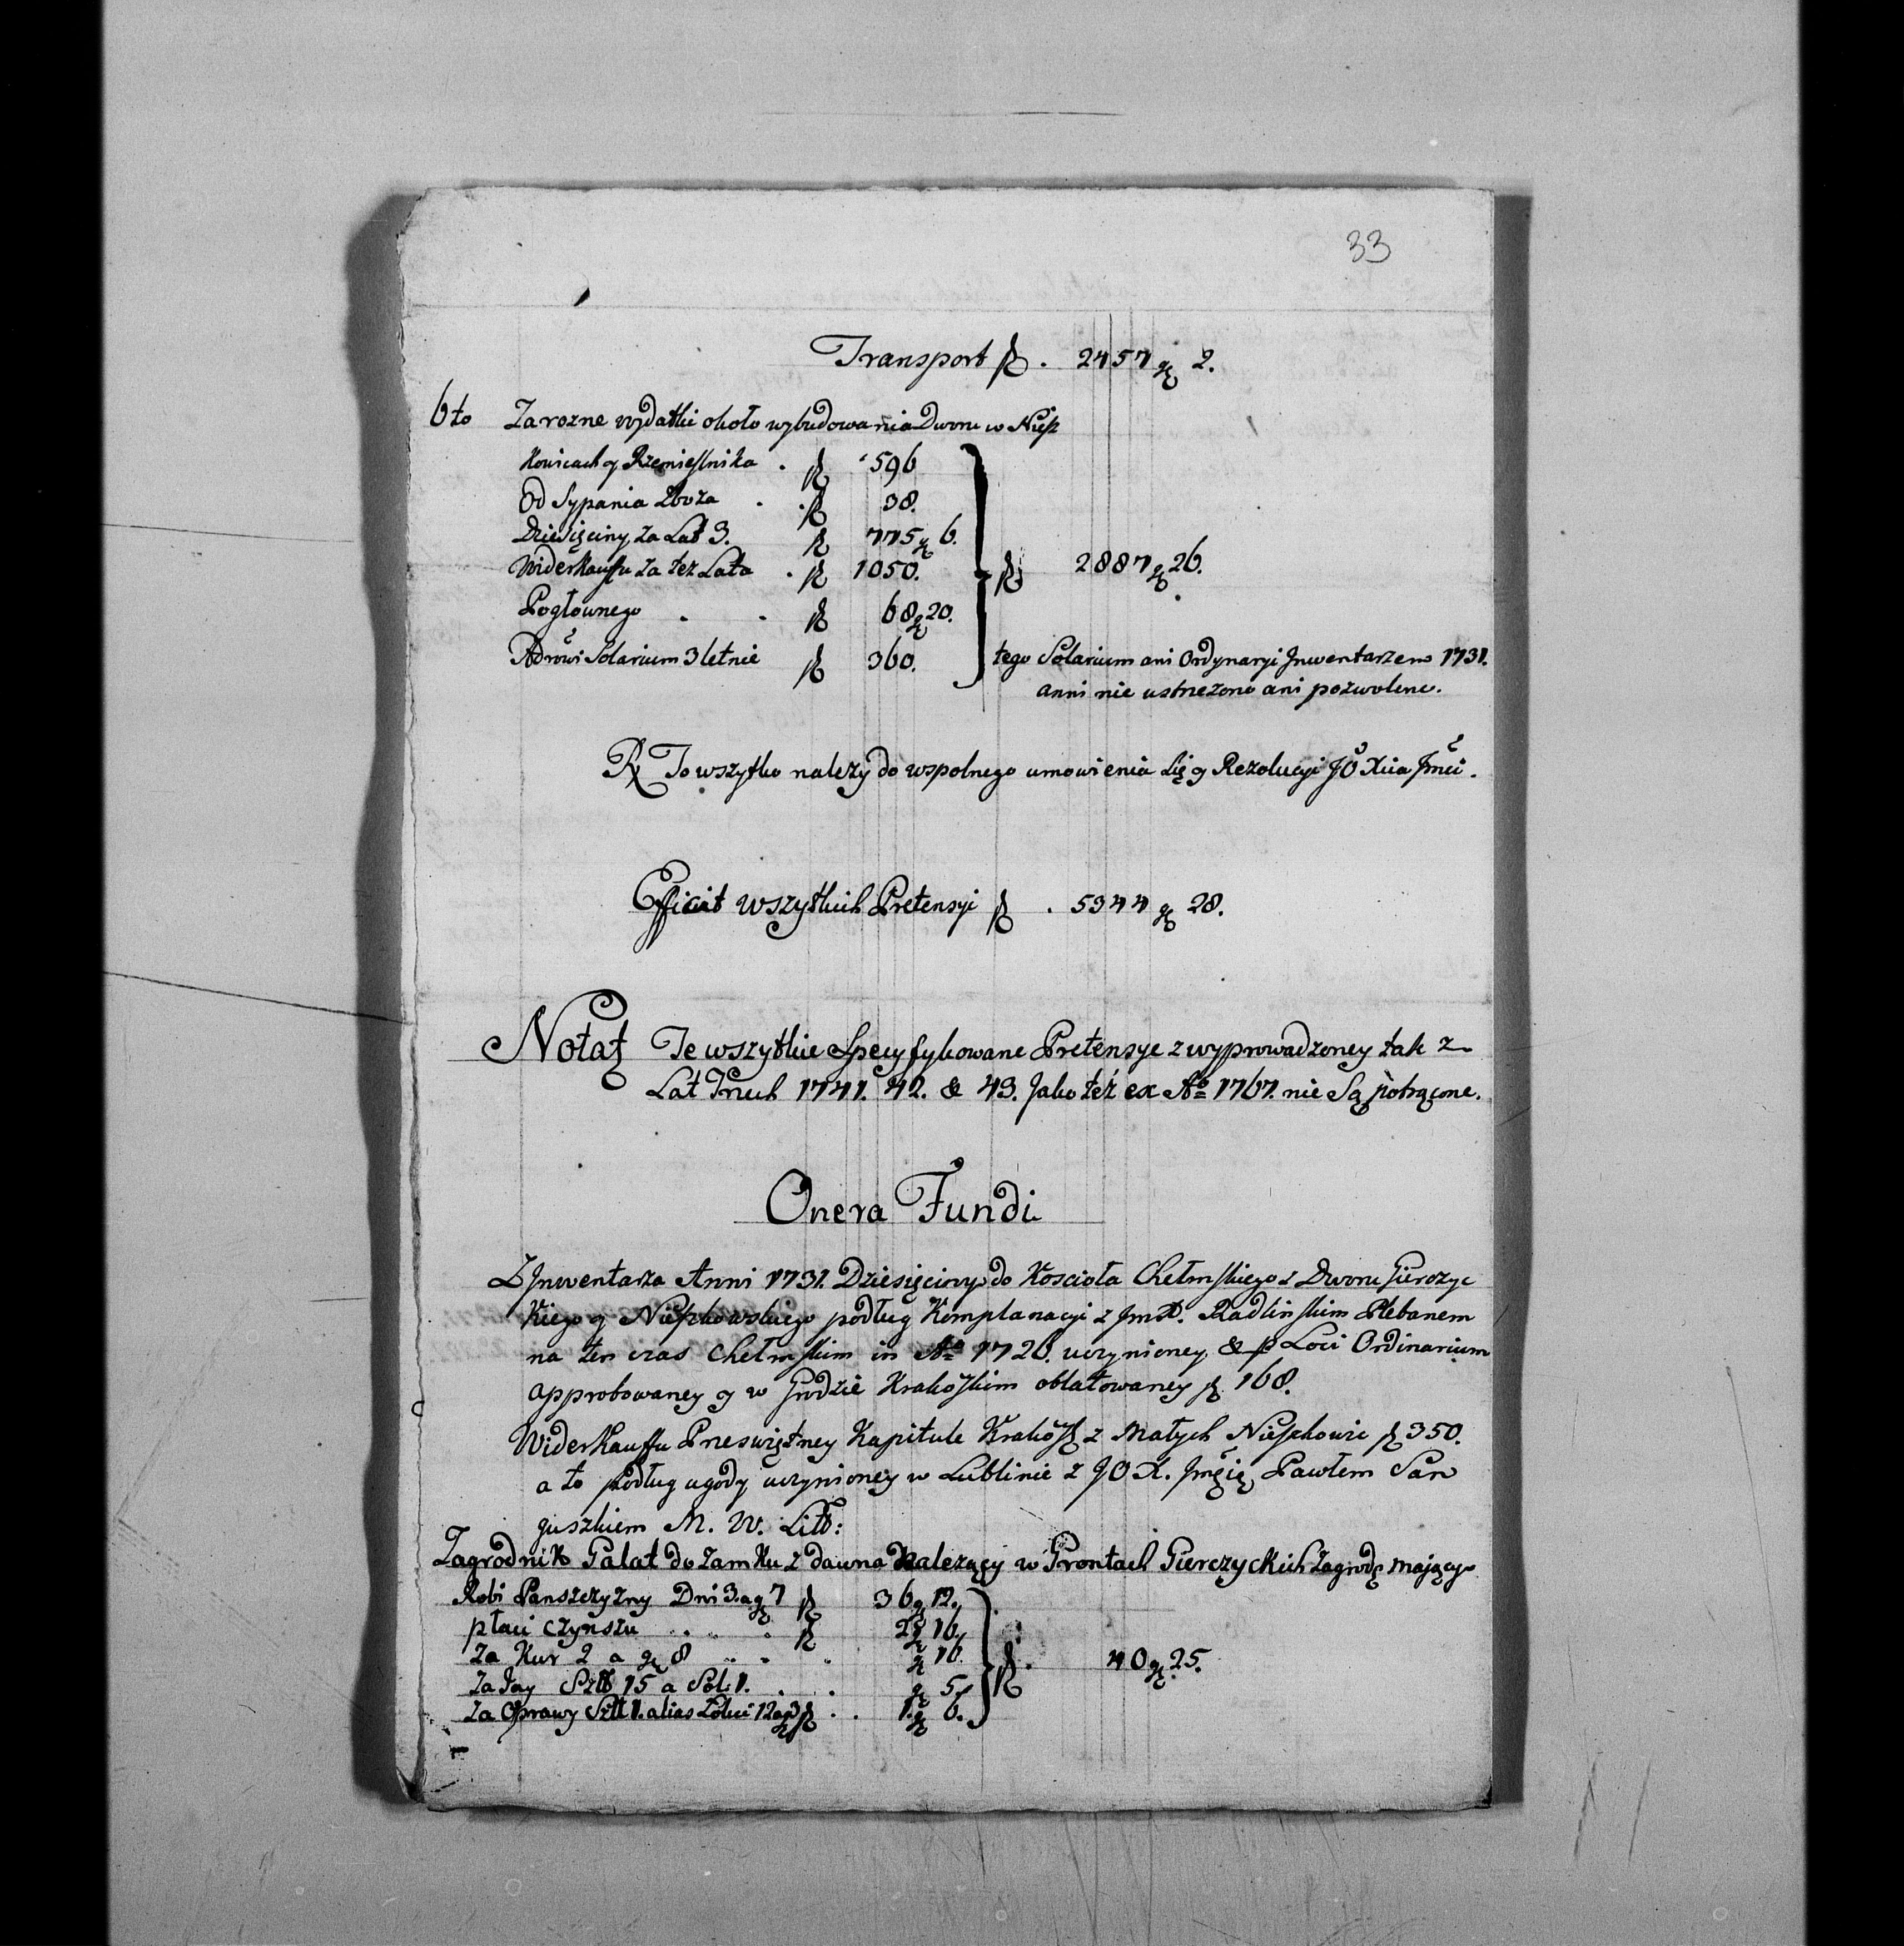 33
Transport fl. 2457 gr 2.
6to Za rozne wydatki około wybudowania Dworu w Niesz
kowicach y Rzemieslnika . fl 596
Od Sypania Zboza . fl 38.
Dziesięciny za Lat 3. fl 775 gr 6.
Widerkauffu za tez Lata . fl 1050. fl 2887 gr 26.
Pogłownego . . fl 68 gr 20.
Solarium 3 letnie fl 360. tego Solarium ani Ordynaryi Inwentarzem 1731.
anni nie ustrzezono ani pozwolono.
To wszytko nalezy do wspolnego umowienia się y Rezolucyi JO Xcia Jmci.
Efficit wszytkich Pretensyi fl . 5344 gr 28.
Te wszytkie Specyfykowane Pretensye z wyprowadzoney tak z
Lat Trzech 1741. 42. & 43. Jako też ex Ao 1767. nie Są potrącone.
Onera Fundi
Z Inwentarza Anni 1731. Dziesięciny do Koscioła Chełmskiego z Dworu Gierczyc
kiego y Nieszkowskiego podług Komplanacyi z Jm X. Radlinskim Plebanem
na ten czas Chełmskim in Ao 1726. uczynioney & p Loci Ordinarium
approbowaney y w Grodzie Krakoskim oblatowaney fl 168.
Widerkauffu Przeswiętney Kapitule Krakosk z Małych Nieszkowic fl 350.
a to podług ugody uczynioney w Lublinie z JO X. Jmcią Pawłem San
guszkiem M. W. Litt:
Zagrodnik Galat do Zamku z dawna Nalezący w Grontach Gierczyckich Zagrodę mający
Robi Panszczyzny Dni 3. a gr 7 fl 36 gr 12.
płaci czynszu . . . fl 2 gr 16.
Za Kur 2 a gr 8 . . . gr 16. fl. 40 gr 25.
Za Jay Sztt 15 a Sol: 1. . . gr 5.
Za Oprawy Sztt 1. alias Łokci 12 a gr 3 fl . . 1. gr 6.